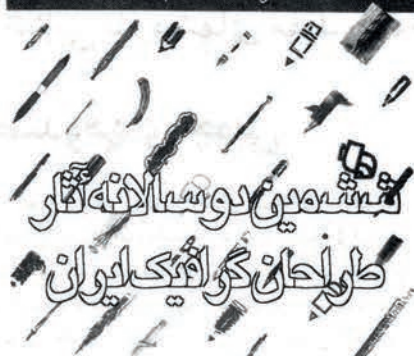 ششمین دوسالانه آثار
طراحان گرافیک ایران